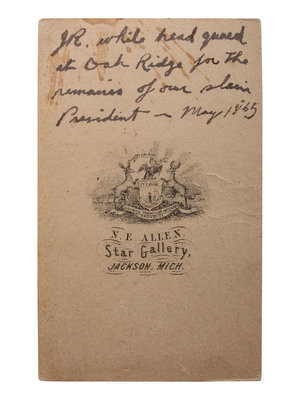 JR. white head guard
at Oak Ridge for the
remanies of our slain
President – May 1865
N. E. ALLEN
Star Gallery,
JACKSON, MICH.